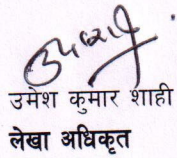 उमेश कुमार शाही
लेखा अधिकृत